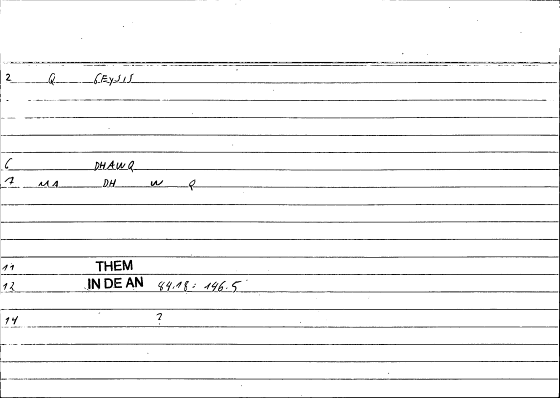 2 Q GEYSIS
6 DHAWQ
7 MA DH W Q
11 THEM
12 IN DE AN 44.18: 146.5
14 ?